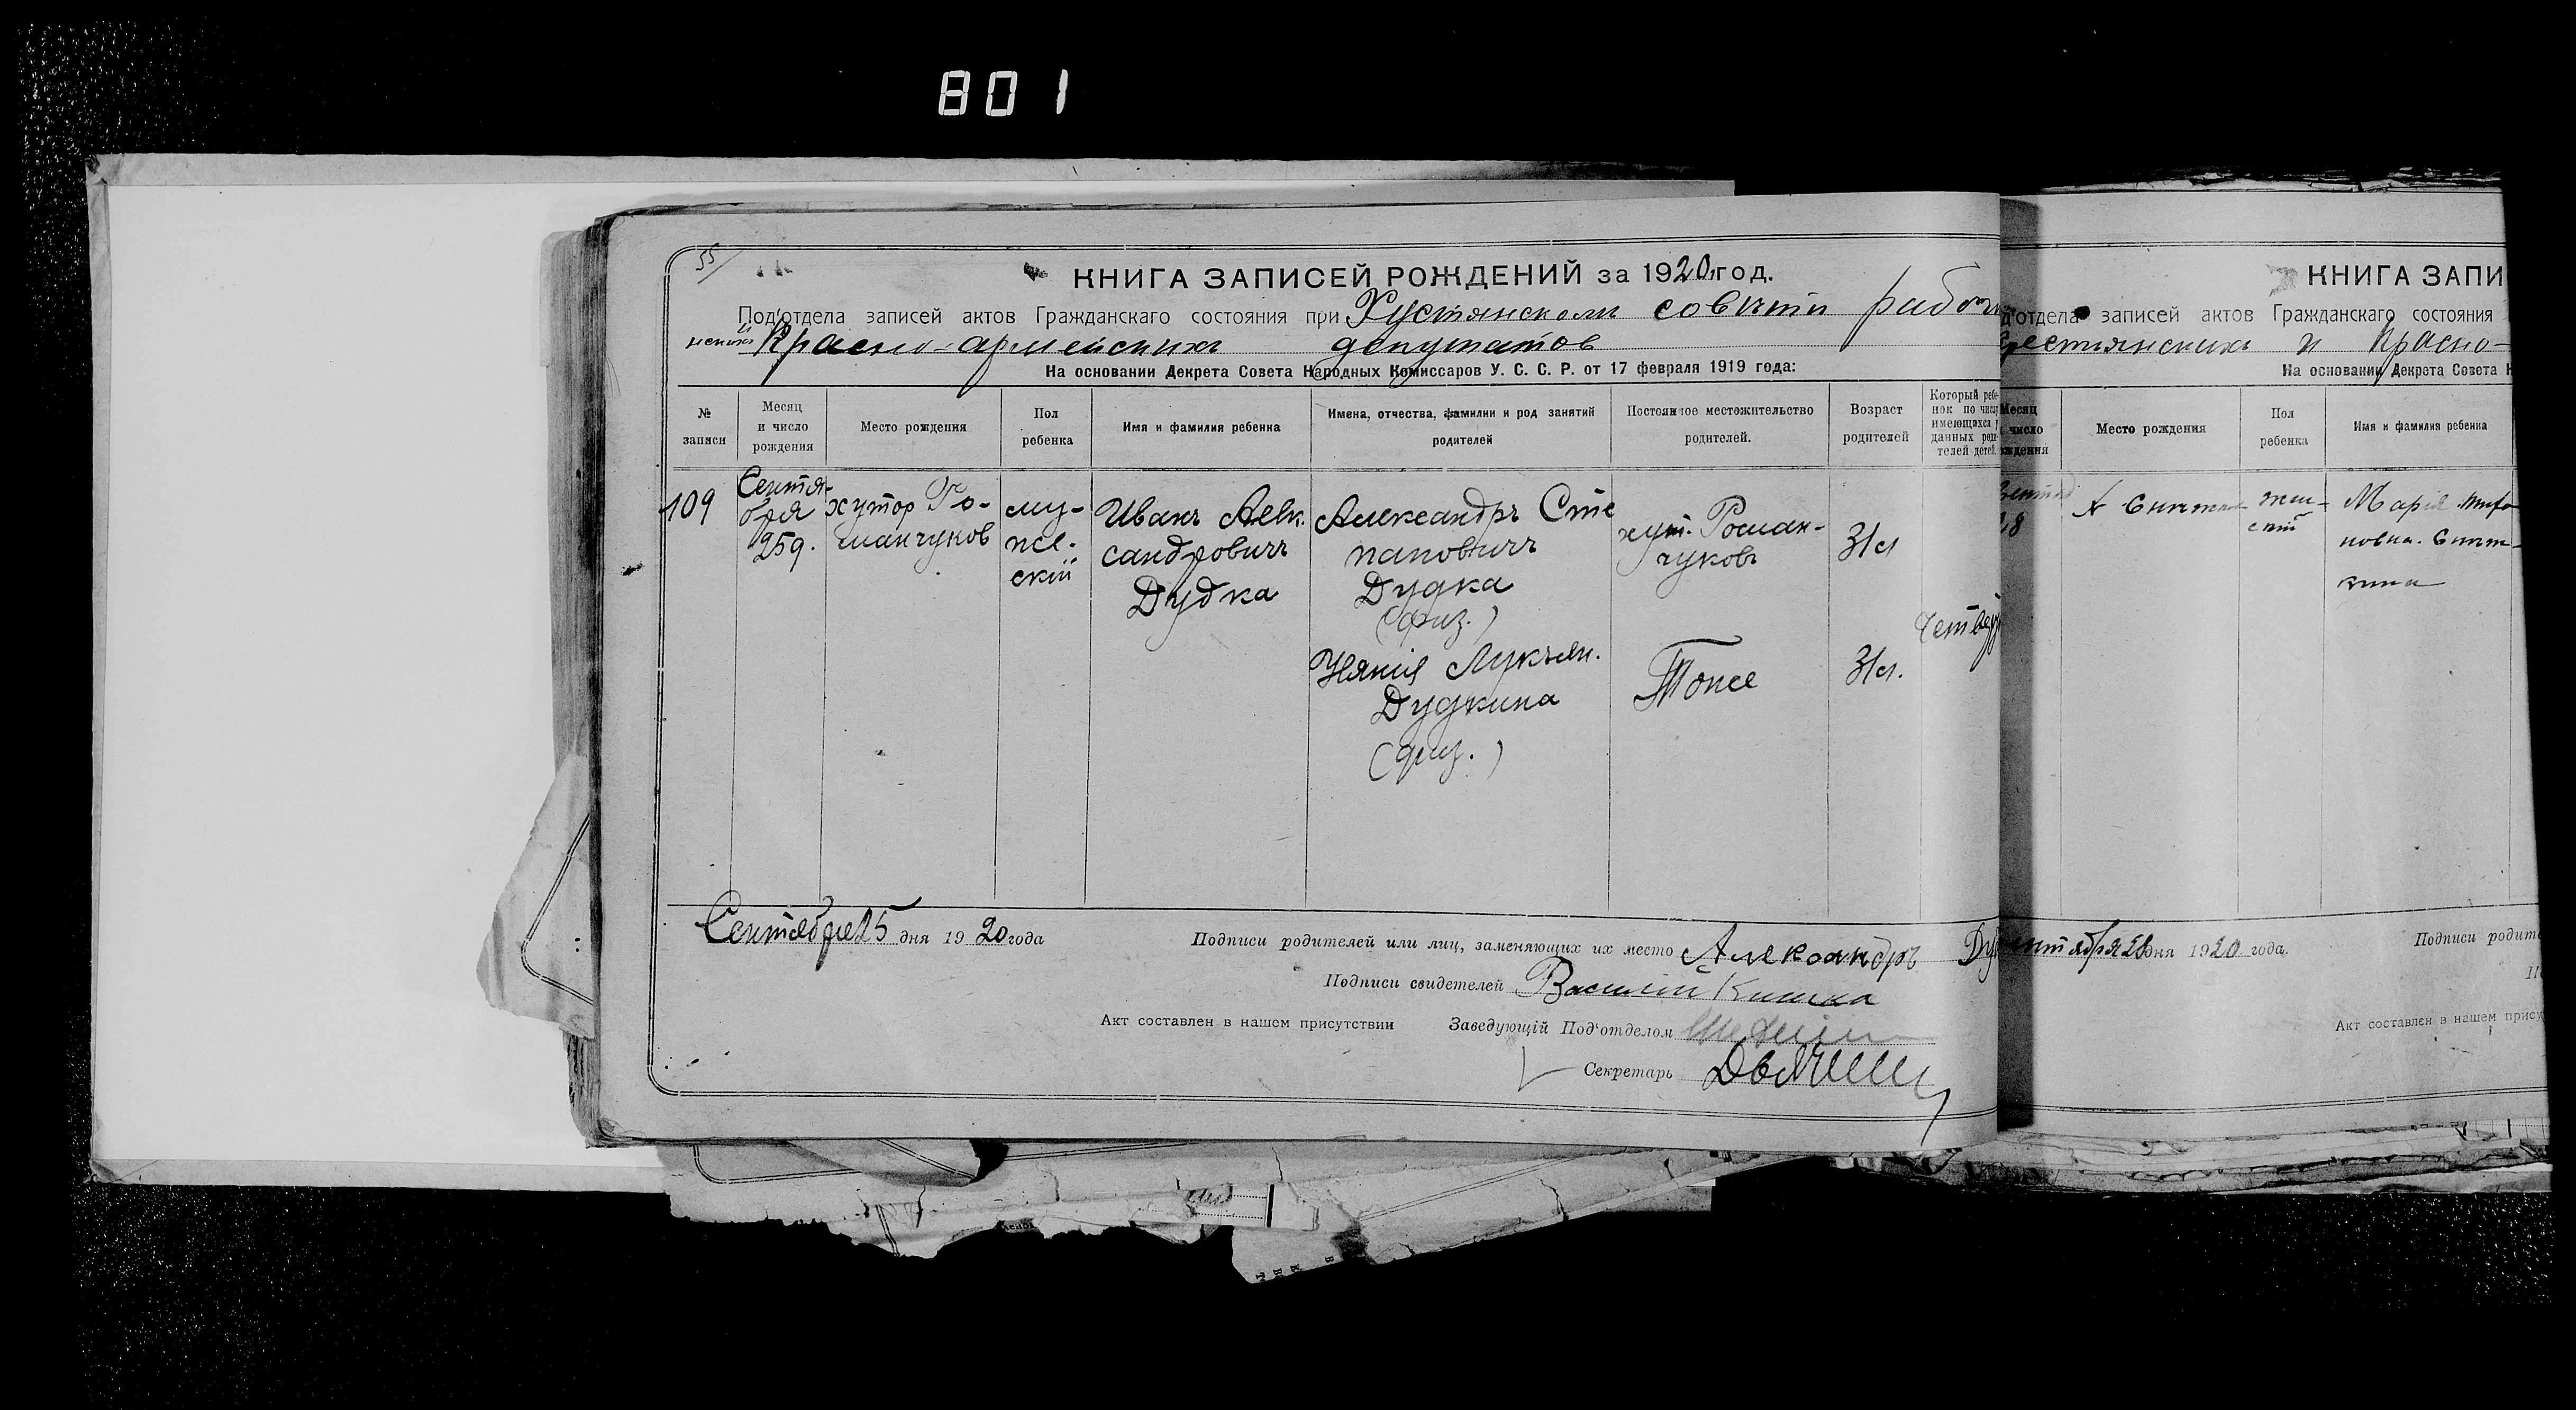 801
55/
КНИГА ЗАПИСЕЙ РОЖДЕНИЙ за 1920 год.
Под'отдела записей актов Гражданскаго состояния при Хустянском совѣти рабоч
и Красно-армейских депутатов
На основании Декрета Совета Народных Комиссаров У. С. С. Р. от 17 февраля 1919 года:
№ записи
Месяц и число рождения
Место рождения
Пол ребенка
Имя и фамилия ребенка
Имена, отчества, фамилии и род занятий родителей
Постоянное местожительство родителей.
Возраст родителей
Который ребенок по числу имеющихся у данных родителей детей.
109
Сентя-
бря
25д.
хутор Ро-
манчуков
му-
же-
скій
Иванъ Алек.
сандровичъ
Дудка
Александръ Сте
пановичъ
Дудка
(физ.)
Лукъян.
Дудкина
(физ.)
хут. Роман-
чуковъ
Тоже
31л
31л.
Четвер
Сентября 25 дня 1920 года
Подписи родителей или лиц, заменяющих их место Александръ Ду
Подписи свидетелей Василій Кишка
Акт составлен в нашем присутствии Заведующій Под'отделом
Секретарь
КНИГА ЗАПИ
д'отдела записей актов Гражданскаго состояния
рестянских и Красно-
На основании Декрета Совета Н
Месяц
число
ждения
Место рождения
Пол ребенка
Имя и фамилия ребенка
жен-
скій
Марія
новна.
кина
ентября 28 дня 1920 года.
Подписи родите
Акт составлен в нашем прису